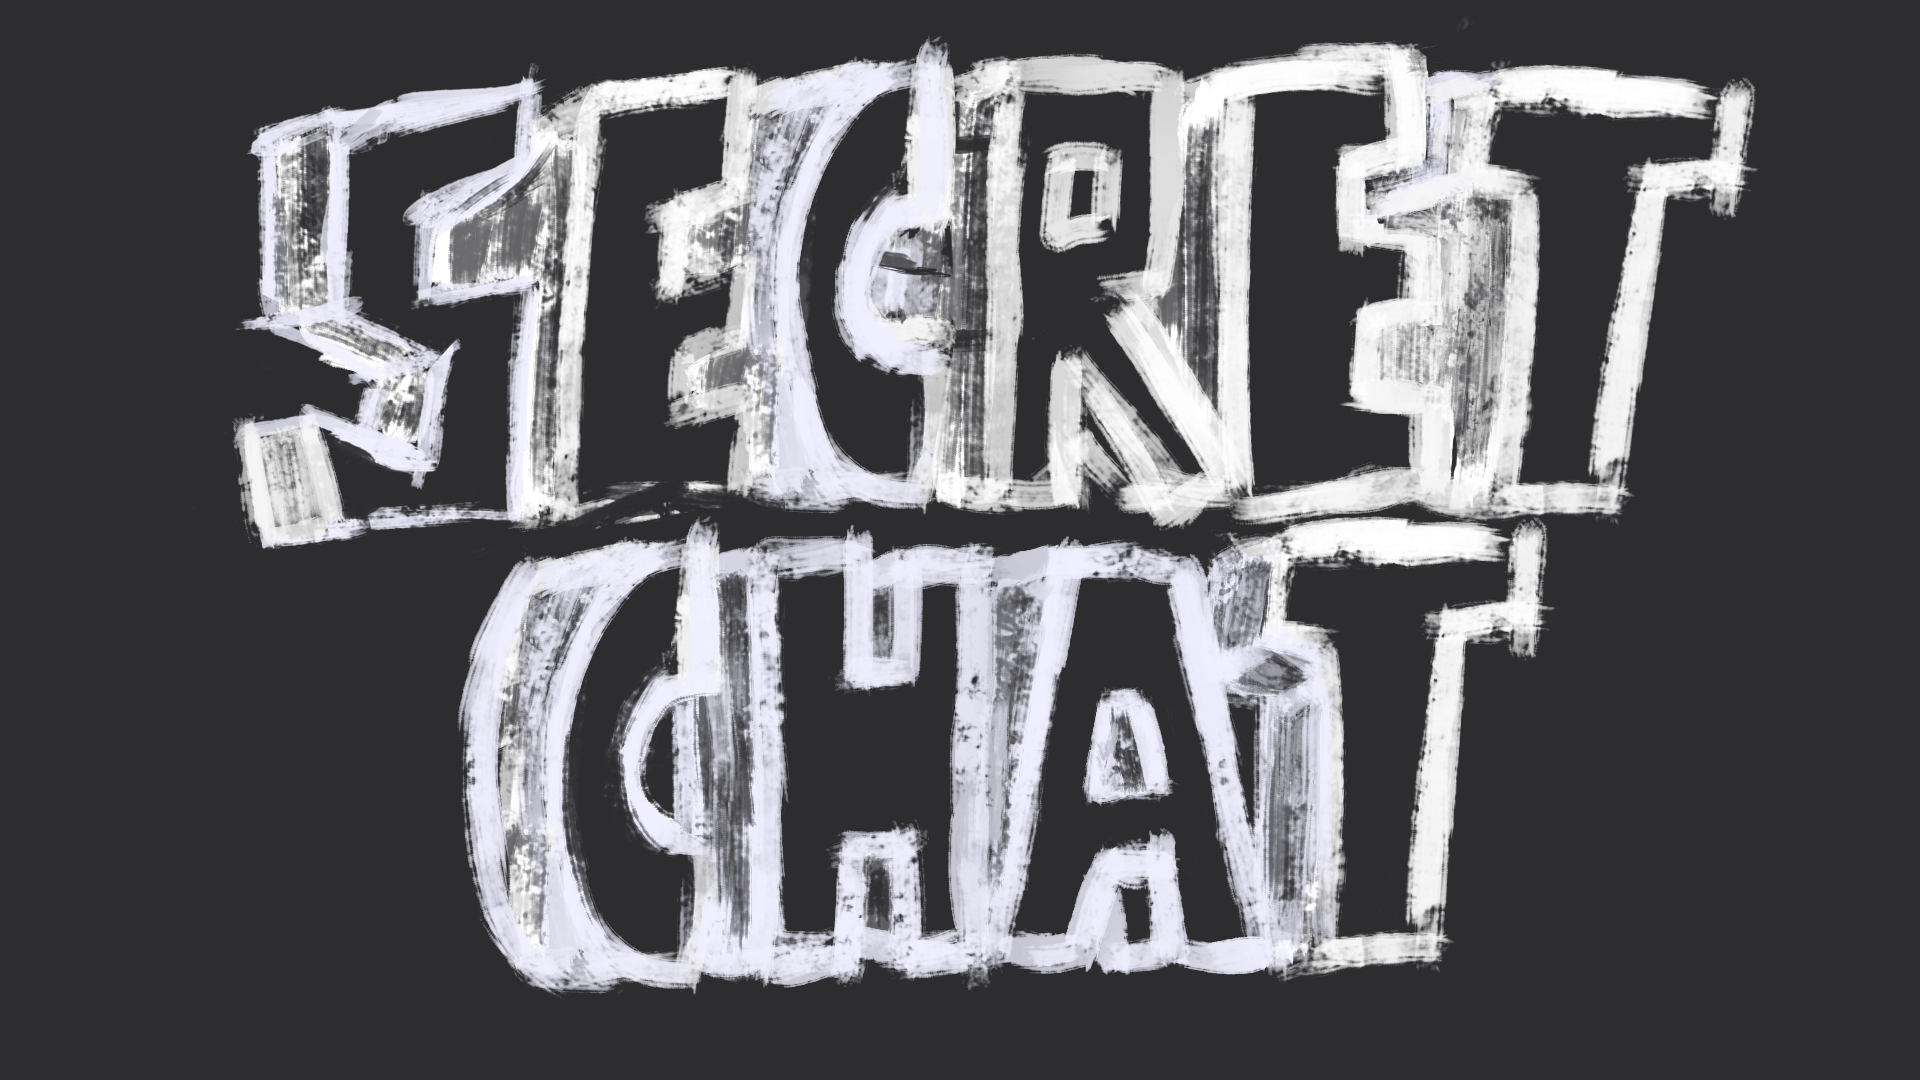 SECRET
CHAT